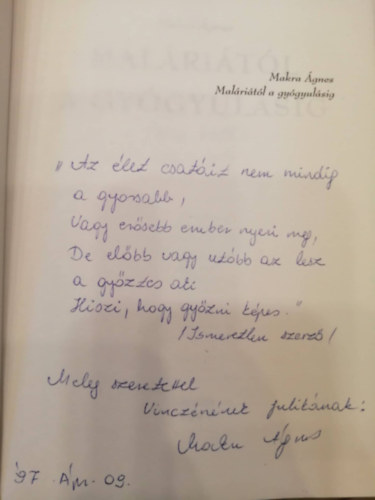 Makra Ágnes
Maláriától a gyógyulásig
MALÁRIÁTÓL
A GYÓGYULÁSIG
"Az élet csatáit nem mindig
a gyorsabb,
Vagy erősebb ember nyeri meg,
De előbb vagy utóbb az lesz
a győztes aki
Hiszi, hogy győzni képes."
/Ismeretlen szerző/
Meleg szeretettel
Vinczénének Julikának:
Makra Ágnes
'97. Ápr. 09.